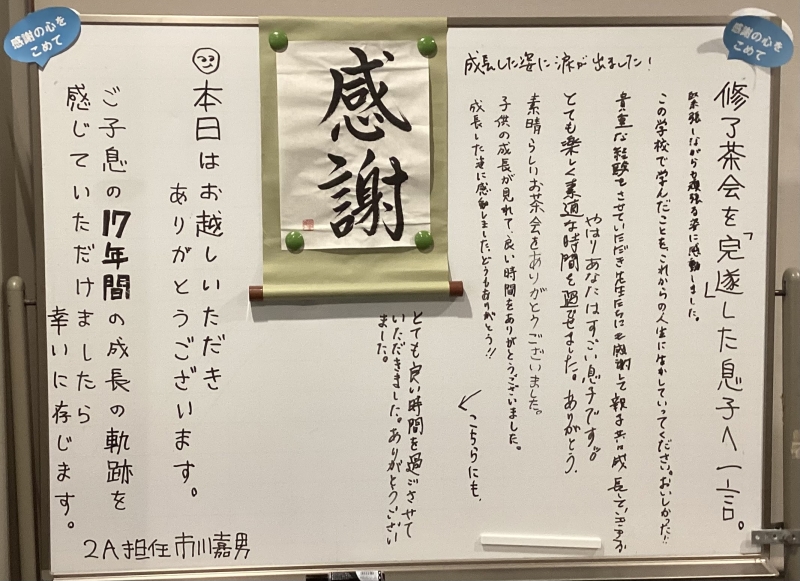 感謝の心を
こめて
感謝の心を
こめて
修了茶会を「完遂」した息子へ一言。
緊張しながらも頑張る姿に感動しました。
この学校で学んだことを、これからの人生に生かしていってください。おいしかった!!
貴重な経験をさせていただき先生たちに感謝して親子共に成長して
やはりあなたはすごい息子です。
とても楽しく素適な時間を過せました。ありがとう。
素晴らしいお茶会をありがとうございました。
子供の成長が見れて、良い時間をありがとうございました。
成長した姿に感動しました、どうもありがとう!!
成長した姿に涙が出ました!
←こちらにも、
感謝
とても良い時間を過ごさせて
いただきました。ありがとうござい
ました。
本日はお越しいただき
ありがとうございます。
ご子息の17年間の成長の軌跡を
感じていただけましたら
幸いに存じます。
2A担任 市川嘉男